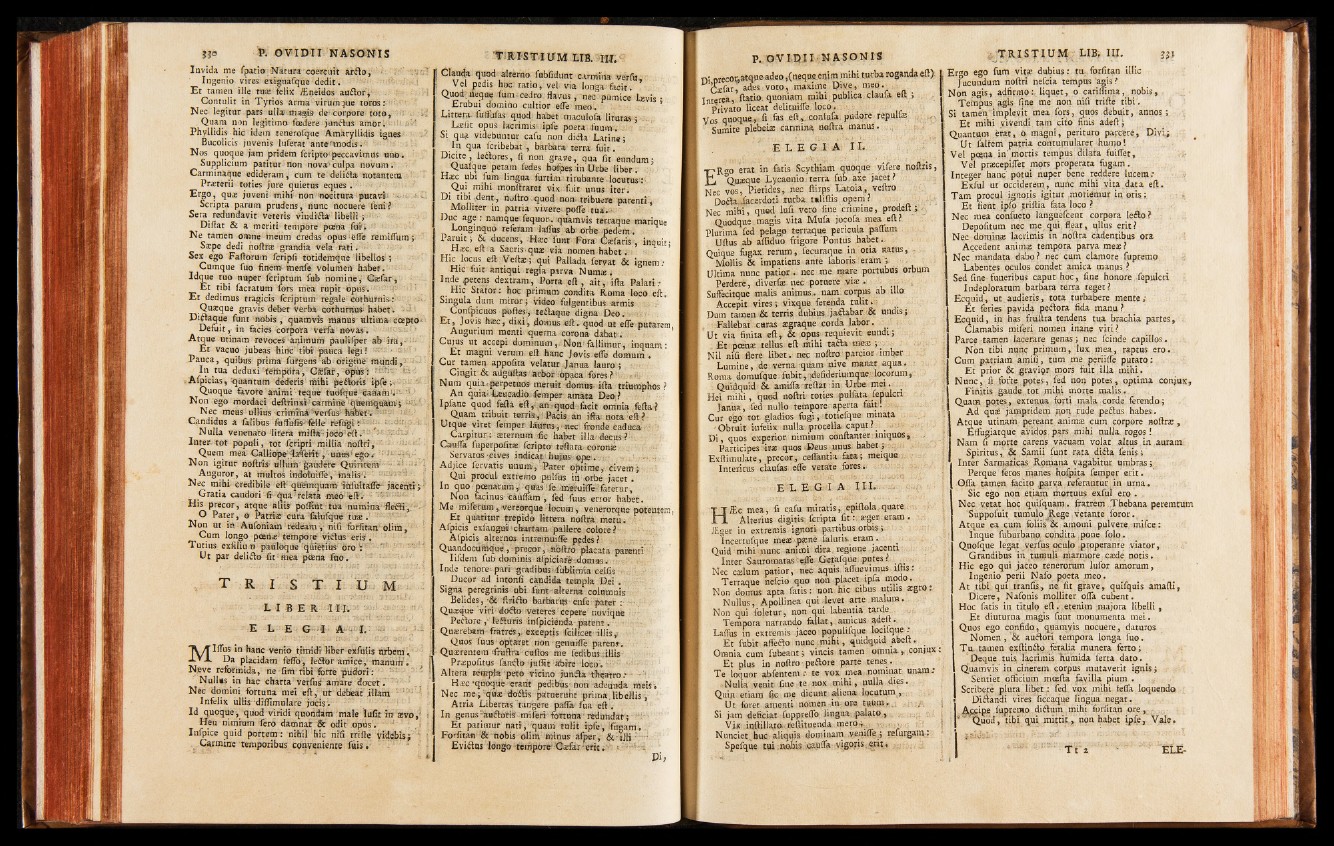 330 P. OVIDII NASONIS
Invida me spatio Natura coercuit arcto,
Ingenio vires exiguasque dedit.
Et tamen ille tuæ felix Æneidos auctor,
Contulit in Tyrios arma virumque toros:
Nec legitur pars ulla magis de corpore toto,
Quam non legitimo fœdere junctus amor.
Phyllidis hic idem tenerosque Amaryllidis ignes
Bucolicis juvenis luserat ante modis.
Nos quoque jam pridem scripto peccavimus uno.
Supplicium patitur non nova culpa novum.
Carminaque edideram, cum te delicta notantem
Præterii toties jure quietus eques.
Ergo, quæ juveni mihi non nocitura putavi
Scripta parum prudens, nunc nocuere seni?
Sera redundavit veteris vindicta libelli;
Distat & a meriti tempore pœna sui.
Ne tamen omne meum credas opus esse remissum;
Sæpe dedi nostræ grandia vela rati.
Sex ego Fastorum scripsi totidemque libellos;
Cumque suo finem mense volumen habet.
Idque tuo nuper scriptum sub nomine, Cæsar,
Et tibi sacratum sors mea rupit opus.
Et dedimus tragicis scriptum regale cothurnis:
Quæque gravis debet verba cothurnus habet.
Dictaque sunt nobis, quamvis manus ultima cœpto
Defuit, in facies corpora versa novas.
Atque utinam revoces animum paulisper ab ira,
Et vacuo jubeas hinc tibi pauca legi!
Pauca, quibus prima surgens ab origine mundi,
In tua deduxi tempora, Cæsar, opus:
Aspicias, quantum dederis mihi pectoris ipse:
Quoque favore animi teque tuosque canam.
Non ego mordaci destrinxi carmine quemquam;
Nec meus ullius crimina versus habet.
Candidus a salibus suffusis felle refugi:
Nulla venenato litera mista joco est.
Inter tot populi, tot scripti millia nostri,
Quem mea Calliope læserit, unus ego.
Non igitur nostris ullum gaudere Quiritem
Auguror, at multos indoluisse, malis.
Nec mihi credibile est quemquam insultasse jacenti;
Gratia candori si qua relata meo est.
His precor, atque aliis possint tua numina flecti,
O Pater, o Patriæ cura salusque tuæ.
Non ut in Ausoniam redeam, nisi forsitan olim,
Cum longo pœnæ tempore victus eris.
Tutius exsilium pauloque quietius oro:
Ut par delicto sit mea pœna suo.
TRISTIUM
LIBER III.
ELEGIA I.
MIssus in hanc venio timidi liber exsulis urbem.
Da placidam fesso, lector amice, manum.
Neve reformida, ne sim tibi forte pudori:
Nullus in hac charta versus amare docet.
Nec domini fortuna mei est, ut debeat illam
Infelix ullis dissimulare jocis.
Id quoque, quod viridi quondam male lusit in ævo,
Heu nimium sero damnat & odit opus.
Inspice quid portem: nihil hic nisi triste videbis;
Carmine temporibus conveniente suis.
TRISTIUM LIB. III.
Clauda quod alterno subsidunt carmina versu,
Vel pedis hoc ratio, vel via longa facit.
Quod neque sum cedro flavus, nec pumice lævis;
Erubui domino cultior esse meo.
Littera suffusas quod habet maculosa lituras;
Læsit opus lacrimis ipse poeta suum.
Si qua videbuntur casu non dicta Latine;
In qua scribebat, barbara terra fuit.
Dicite, lectores, si non grave, qua sit eundum;
Quasque petam sedes hospes in Urbe liber.
Hæc ubi sum lingua furtim titubante locutus:
Qui mihi monstraret vix fuit unus iter.
Di tibi dent, nostro quod non tribuere parenti,
Molliter in patria vivere posse tua.
Duc age: namque sequor. quamvis terraque marique
Longinquo referam lassus ab orbe pedem.
Paruit; & ducens, Hæc sunt Fora Cæsaris, inquit;
Hæc est a Sacris quæ via nomen habet.
Hic locus est Vestæ; qui Pallada servat & ignem:
Hic fuit antiqui regia parva Numæ.
Inde petens dextram, Porta est, ait, ista Palati:
Hic Stator: hoc primum condita Roma loco est.
Singula dum miror; video fulgentibus armis
Conspicuos postes, tectaque digna Deo.
Et, Jovis hæc, dixi, domus est. quod ut esse putarem,
Augurium menti querna corona dabat.
Cujus ut accepi dominum, Non fallimur, inquam:
Et magni verum est hanc Jovis esse domum.
Cur tamen apposita velatur Janua lauro;
Cingit & augustas arbor opaca fores?
Num quia perpetuos meruit domus ista triumphos?
An quia Leucadio semper amata Deo?
Ipsane quod festa est, an quod facit omnia festa?
Quam tribuit terris, Pacis an ista nota est?
Utque viret semper laurus, nec fronde caduca
Carpitur: æternum sic habet illa decus?
Caussa superpositæ scripto testata coronæ
Servatos cives indicat hujus ope.
Adjice servatis unum, Pater optime, civem;
Qui procul extremo pulsus in orbe jacet.
In quo pœnarum, quas se meruisse fatetur,
Non facinus caussam, sed suus error habet.
Me miserum, vereorque locum, venerorque potentem,
Et quatitur trepido littera nostra metu.
Aspicis exsangui chartam pallere colore?
Aspicis alternos intremuisse pedes?
Quandocumque, precor, nostro placata parenti
Iisdem sub dominis aspiciare domus.
Inde tenore pari gradibus sublimia celsis
Ducor ad intonsi candida templa Dei.
Signa peregrinis ubi sunt alterna columnis
Belides, & stricto barbarus ense pater:
Quæque viri docto veteres cepere novique
Pectore, lecturis inspicienda patent.
Quærebam fratres, exceptis scilicet illis,
Quos suus optaret non genuisse parens.
Quærentem frustra custos me sedibus illis
Præpositus sancto jussit abire loco.
Altera templa peto vicino juncta theatro:
Hæc quoque erant pedibus non adeunda meis,
Nec me, quæ doctis patuerunt prima libellis,
Atria Libertas tangere passa sua est.
In genus auctoris miseri fortuna redundat;
Et patimur nati, quam tulit ipse, fugam.
Forsitan & nobis olim minus asper, & illi
Evictus longo tempore Cæsar erit.
Di,
P. OVIDII NASONIS
Di, precor, atque adeo, (neque enim mihi turba roganda est)
Cæsar, ades voto, maxime Dive, meo.
Interea, statio quoniam mihi publica clausa est;
Privato liceat delituisse loco.
Vos quoque, si fas est, confusa pudore repulsæ
Sumite plebeiæ carmina nostra manus.
ELEGIA II.
ERgo erat in fatis Scythiam quoque visere nostris,
Quæque Lycaonio terra sub axe jacet?
Nec vos, Pierides, nec stirps Latoia, vestro
Docta sacerdoti turba tulistis opem?
Nec mihi, quod lusi vero sine crimine, prodest;
Quodque magis vita Musa jocosa mea est?
Plurima sed pelago terraque pericula passum
Ustus ab assiduo frigore Pontus habet.
Quique fugax rerum, securaque in otia natus,
Mollis & impatiens ante laboris eram;
Ultima nunc patior. nec me mare portubus orbum
Perdere, diversæ nec potuere viæ.
Suffecitque malis animus. nam corpus ab illo
Accepit vires; vixque ferenda tulit.
Dum tamen & terris dubius jactabar & undis;
Fallebat curas ægraque corda labor.
Ut via finita est, & opus requievit eundi;
Et pœnæ tellus est mihi tacta meæ;
Nil nisi flere libet. nec nostro parcior imber
Lumine, de verna quam nive manat aqua.
Roma domusque subit, desideriumque locorum,
Quidquid & amissa restat in Urbe mei.
Hei mihi, quod nostri toties pulsata sepulcri
Janua, sed nullo tempore aperta fuit!
Cur ego tot gladios fugi, totiesque minata
Obruit infelix nulla procella caput?
Di, quos experior nimium constanter iniquos,
Participes iræ quos Deus unus habet;
Exstimulate, precor, cessantia fata; meique
Interitus clausas esse vetate fores.
ELEGIA III.
HÆc mea, si casu miraris, epistola quare
Alterius digitis scripta sit: æger eram.
Æger in extremis ignoti partibus orbis,
Incertusque meæ pæne salutis eram.
Quid mihi nunc animi dira regione jacenti
Inter Sauromatas esse Getasque putes?
Nec cælum patior, nec aquis assuevimus istis:
Terraque nescio quo non placet ipsa modo.
Non domus apta satis: non hic cibus utilis ægro:
Nullus, Apollinea qui levet arte malum.
Non qui soletur, non qui labentia tarde
Tempora narrando fallat, amicus adest.
Lassus in extremis jaceo populisque locisque:
Et subit affecto nunc mihi, quidquid abest.
Omnia cum subeant; vincis tamen omnia, conjux:
Et plus in nostro pectore parte tenes.
Te loquor absentem: te vox mea nominat unam:
Nulla venit sine te nox mihi, nulla dies.
Quin etiam sic me dicunt aliena locutum,
Ut foret amenti nomen in ore tuum.
Si jam deficiat suppresso lingua palato,
Vix instillato restituenda mero;
Nunciet huc aliquis dominam venisse; resurgam:
Spesque tui nobis caussa vigoris erit.
TRISTIUM LIB. III. 331
Ergo ego sum vitæ dubius: tu forsitan illic
Jucundum nostri nescia tempus agis?
Non agis, adfirmo: liquet, o carissima, nobis,
Tempus agis sine me non nisi triste tibi.
Si tamen implevit mea sors, quos debuit, annos;
Et mihi vivendi tam cito finis adest;
Quantum erat, o magni, perituro parcere, Divi;
Ut saltem patria contumularer humo!
Vel pœna in mortis tempus dilata fuisset,
Vel præcepisset mors properata fugam.
Integer hanc potui nuper bene reddere lucem:
Exsul ut occiderem, nunc mihi vita data est.
Tam procul ignotis igitur moriemur in oris;
Et fient ipso tristia fata loco?
Nec mea consueto languescent corpora lecto?
Depositum nec me qui fleat, ullus erit?
Nec dominæ lacrimis in nostra cadentibus ora
Accedent animæ tempora parva meæ?
Nec mandata dabo? nec cum clamore supremo
Labentes oculos condet amica manus?
Sed sine funeribus caput hoc, sine honore sepulcri
Indeploratum barbara terra teget?
Ecquid, ut audieris, tota turbabere mente,
Et feries pavida pectora fida manu?
Ecquid, in has frustra tendens tua brachia partes,
Clamabis miseri nomen inane viri?
Parce tamen lacerare genas; nec scinde capillos.
Non tibi nunc primum, lux mea, raptus ero.
Cum patriam amisi, tum me periisse putato:
Et prior & gravior mors fuit illa mihi.
Nunc, si forte potes, sed non potes, optima conjux,
Finitis gaude tot mihi morte malis.
Quam potes, extenua forti mala corde ferendo;
Ad quæ jampridem non rude pectus habes.
Atque utinam pereant animæ cum corpore nostræ,
Effugiatque avidos pars mihi nulla rogos!
Nam si morte carens vacuam volat altus in auram
Spiritus, & Samii sunt rata dicta senis;
Inter Sarmaticas Romana vagabitur umbras;
Perque feros manes hospita semper erit.
Ossa tamen facito parva referantur in urna.
Sic ego non etiam mortuus exsul ero.
Nec vetat hoc quisquam. fratrem Thebana peremtum
Supposuit tumulo Rege vetante soror.
Atque ea cum foliis & amomi pulvere misce:
Inque suburbano condita pone solo.
Quosque legat versus oculo properante viator,
Grandibus in tumuli marmore cæde notis.
Hic ego qui jaceo tenerorum lusor amorum,
Ingenio perii Naso poeta meo.
At tibi qui transis, ne sit grave, quisquis amasti,
Dicere, Nasonis molliter ossa cubent.
Hoc satis in titulo est. etenim majora libelli,
Et diuturna magis sunt monumenta mei.
Quos ego confido, quamvis nocuere, daturos
Nomen, & auctori tempora longa suo.
Tu tamen exstincto feralia munera ferto;
Deque tuis lacrimis humida serta dato.
Quamvis in cinerem corpus mutaverit ignis;
Sentiet officium mœsta favilla pium.
Scribere plura libet: sed vox mihi fessa loquendo
Dictandi vires siccaque lingua negat.
Accipe supremo dictum mihi forsitan ore,
Quod, tibi qui mittit, non habet ipse, Vale.
Tt 2 ELE-